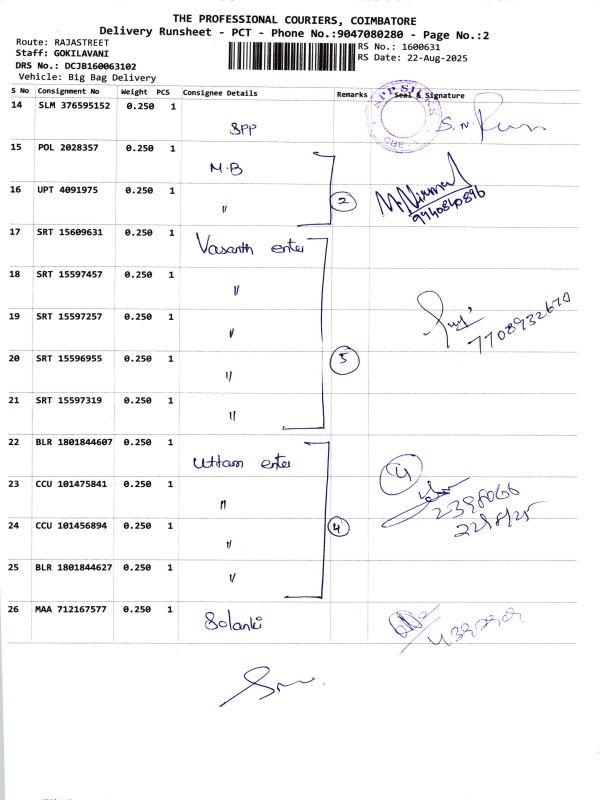 THE PROFESSIONAL COURIERS, COIMBATORE
Delivery Runsheet - PCT - Phone No.:9047080280 - Page No.:2
Route: RAJASTREET
Staff: GOKILAVANI
DRS No.: DCJB160063102
Vehicle: Big Bag Delivery
RS No.: 1600631
RS Date: 22-Aug-2025
S No Consignment No Weight PCS Consignee Details Remarks Seal & Signature
14 SLM 376595152 0.250 1 SPP
SPP SILKS
CBE
15 POL 2028357 0.250 1 M.B
16 UPT 4091975 0.250 1 "
2
9940840896
17 SRT 15609631 0.250 1 Vasanth enter
18 SRT 15597457 0.250 1 "
19 SRT 15597257 0.250 1 "
7708932670
20 SRT 15596955 0.250 1 "
5
21 SRT 15597319 0.250 1 "
22 BLR 1801844607 0.250 1 Uttam enter
4
23 CCU 101475841 0.250 1 "
2398066
24 CCU 101456894 0.250 1 "
4
22/8/25
25 BLR 1801844627 0.250 1 "
26 MAA 712167577 0.250 1 Solanki